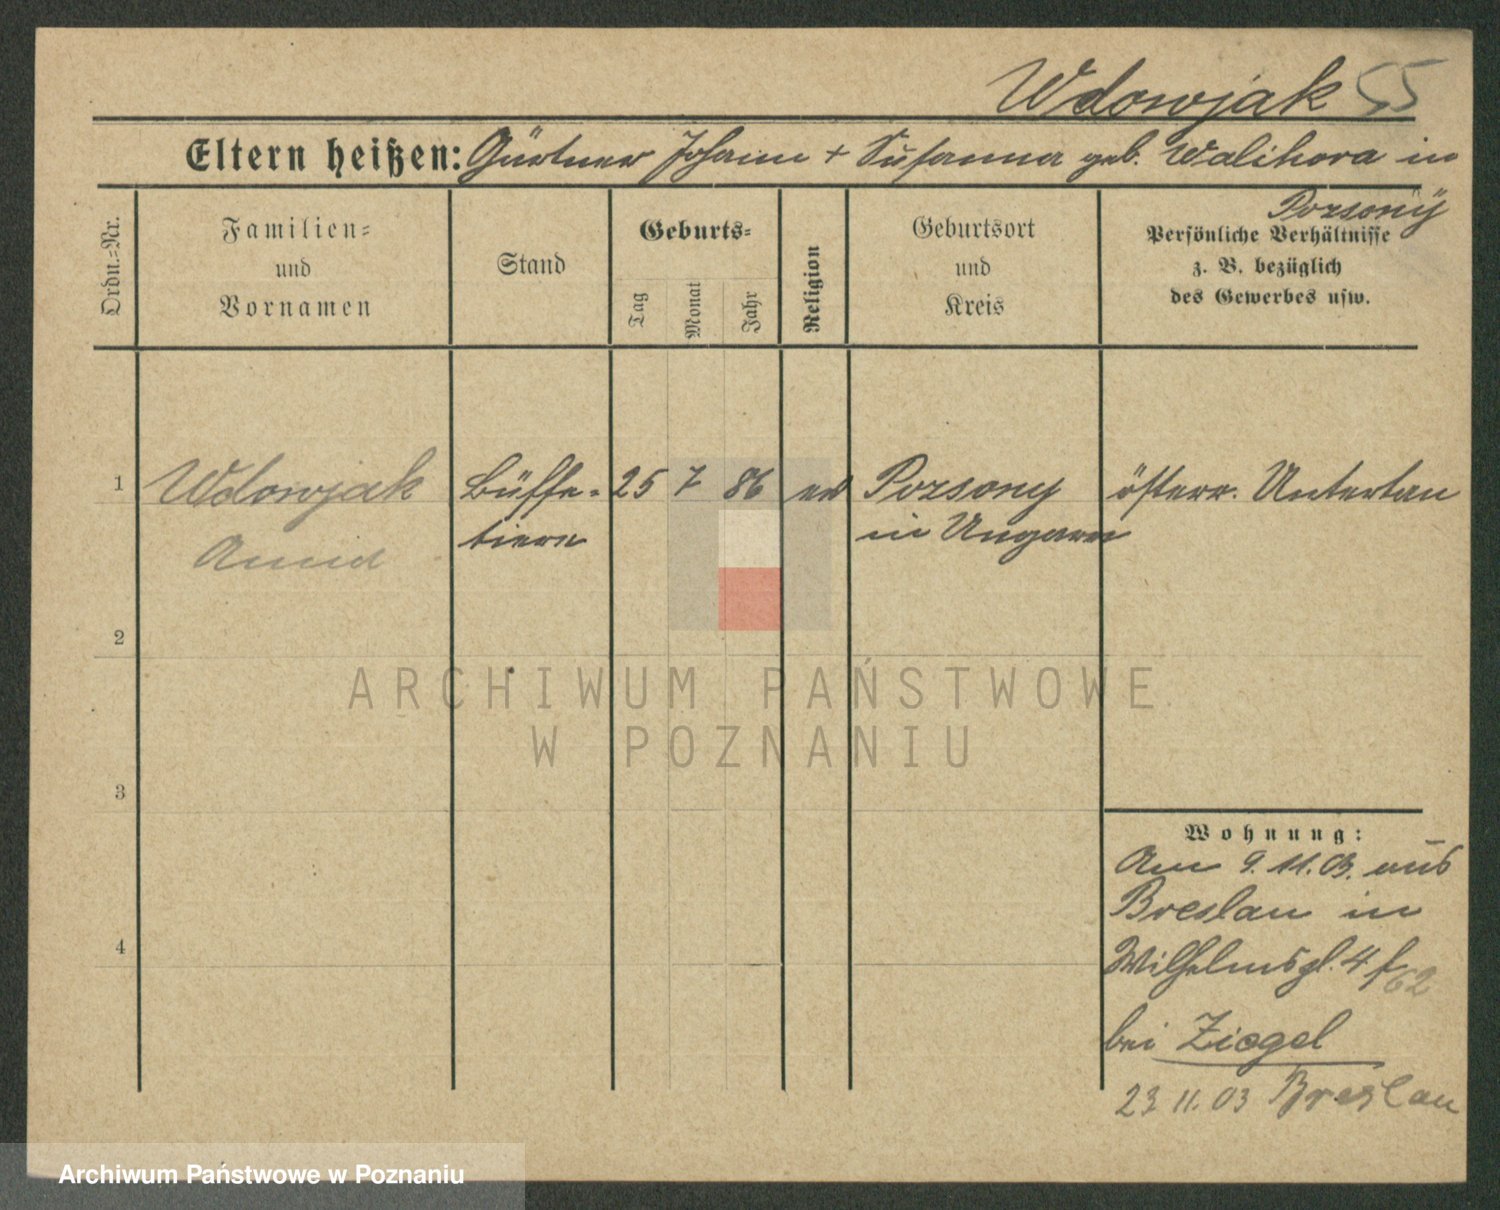 Wdowjak 55
Eltern heißen: Gärtner Johann + Susanna geb. Walihora in
Pozsony
Ordn.-Nr.
Familien-
und
Vornamen
Stand
Geburts-
Tag
Monat
Jahr
Religion
Geburtsort
und
Kreis
Persönliche Verhältnisse
z. B. bezüglich
des Gewerbes usw.
1 Wdowjak Büffe- 25 7 86 ev Pozsony österr. Untertan
Anna tiere in Ungarn
2
3
4
Wohnung:
Am 9.11.03. aus
Breslau in
Wilhelmspl. 4
bei Ziegel
23 11.03 Breslau
ARCHIWUM PAŃSTWOWE
W POZNANIU
Archiwum Państwowe w Poznaniu